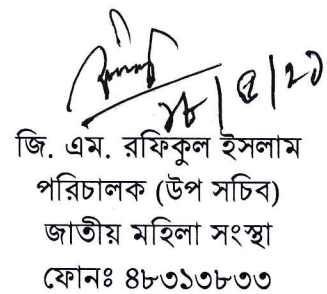 জি. এম. রফিকুল ইসলাম
পরিচালক (উপ সচিব)
জাতীয় মহিলা সংস্থা
ফোনঃ ৪৮৩১৩৮৩৩